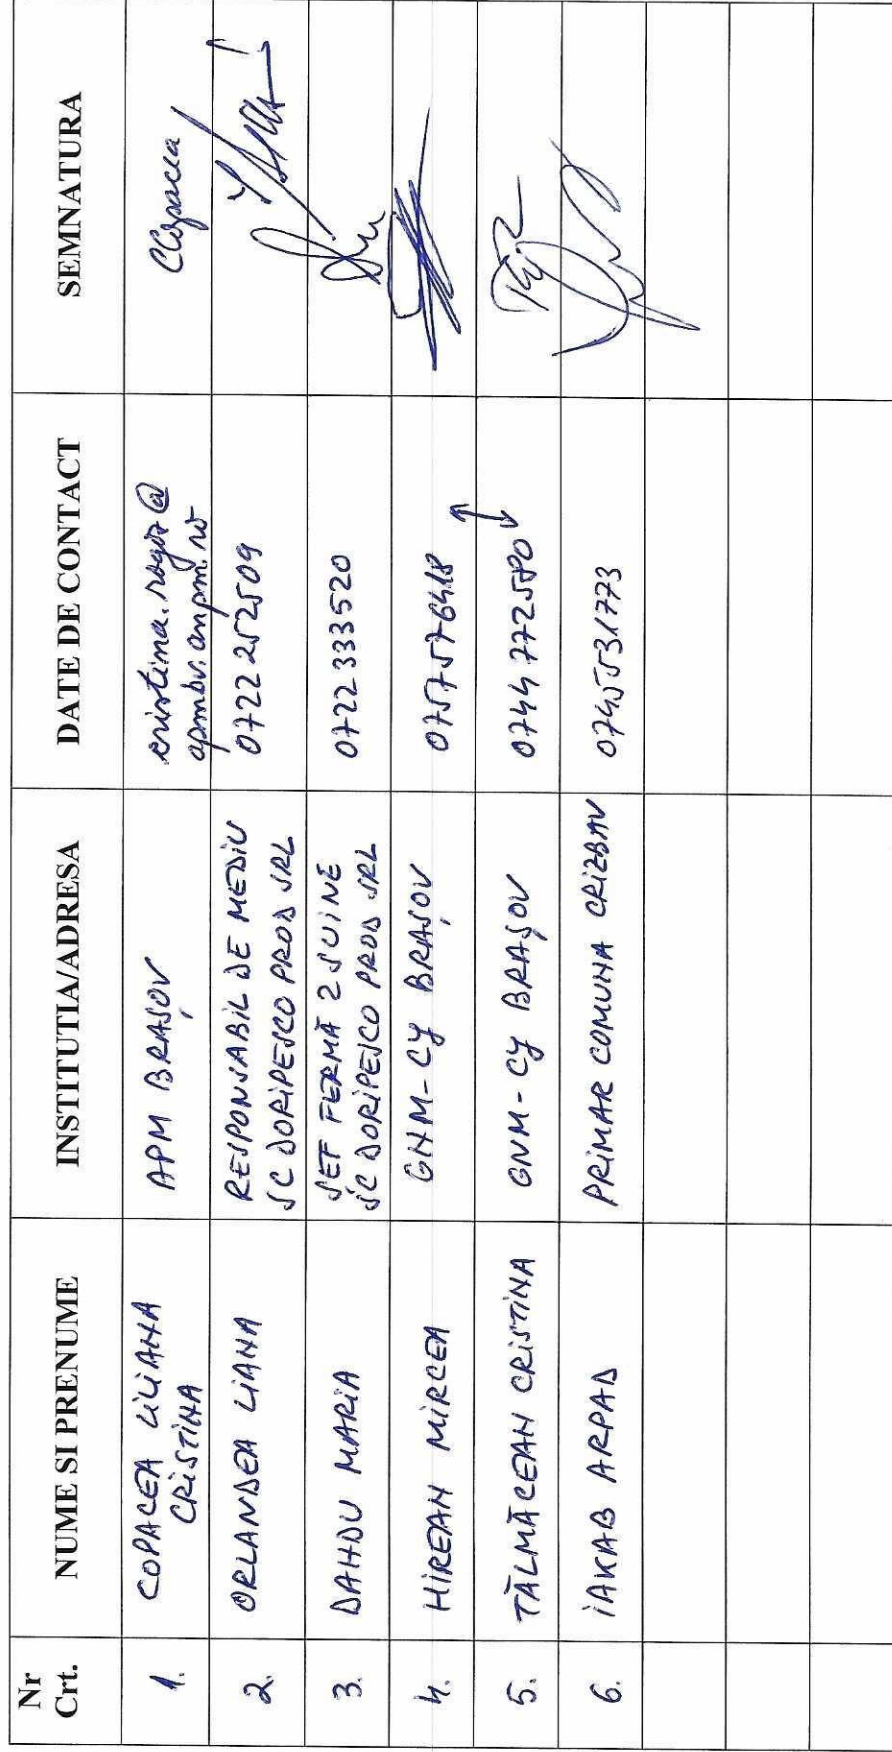 Nr Crt. NUME SI PRENUME INSTITUTIA/ADRESA DATE DE CONTACT SEMNATURA
1. COPACEA LILIANA CRISTINA APM BRAȘOV cristina.rogoz@ apmbv.anpm.ro CCopacea
2. ORLANDEA LIANA RESPONSABIL DE MEDIU SC DORIPESCO PROD SRL 0722 252509
3. DAHDU MARIA SEF FERMĂ 2 SUINE SC DORIPESCO PROD SRL 0722 333520
4. HIREAN MIRCEA GNM-CJ BRAȘOV 0757576418
5. TĂLMĂCEAN CRISTINA GNM-CJ BRAȘOV 0744 772580
6. IAKAB ARPAD PRIMAR COMUNA CRIZBAV 0745531773